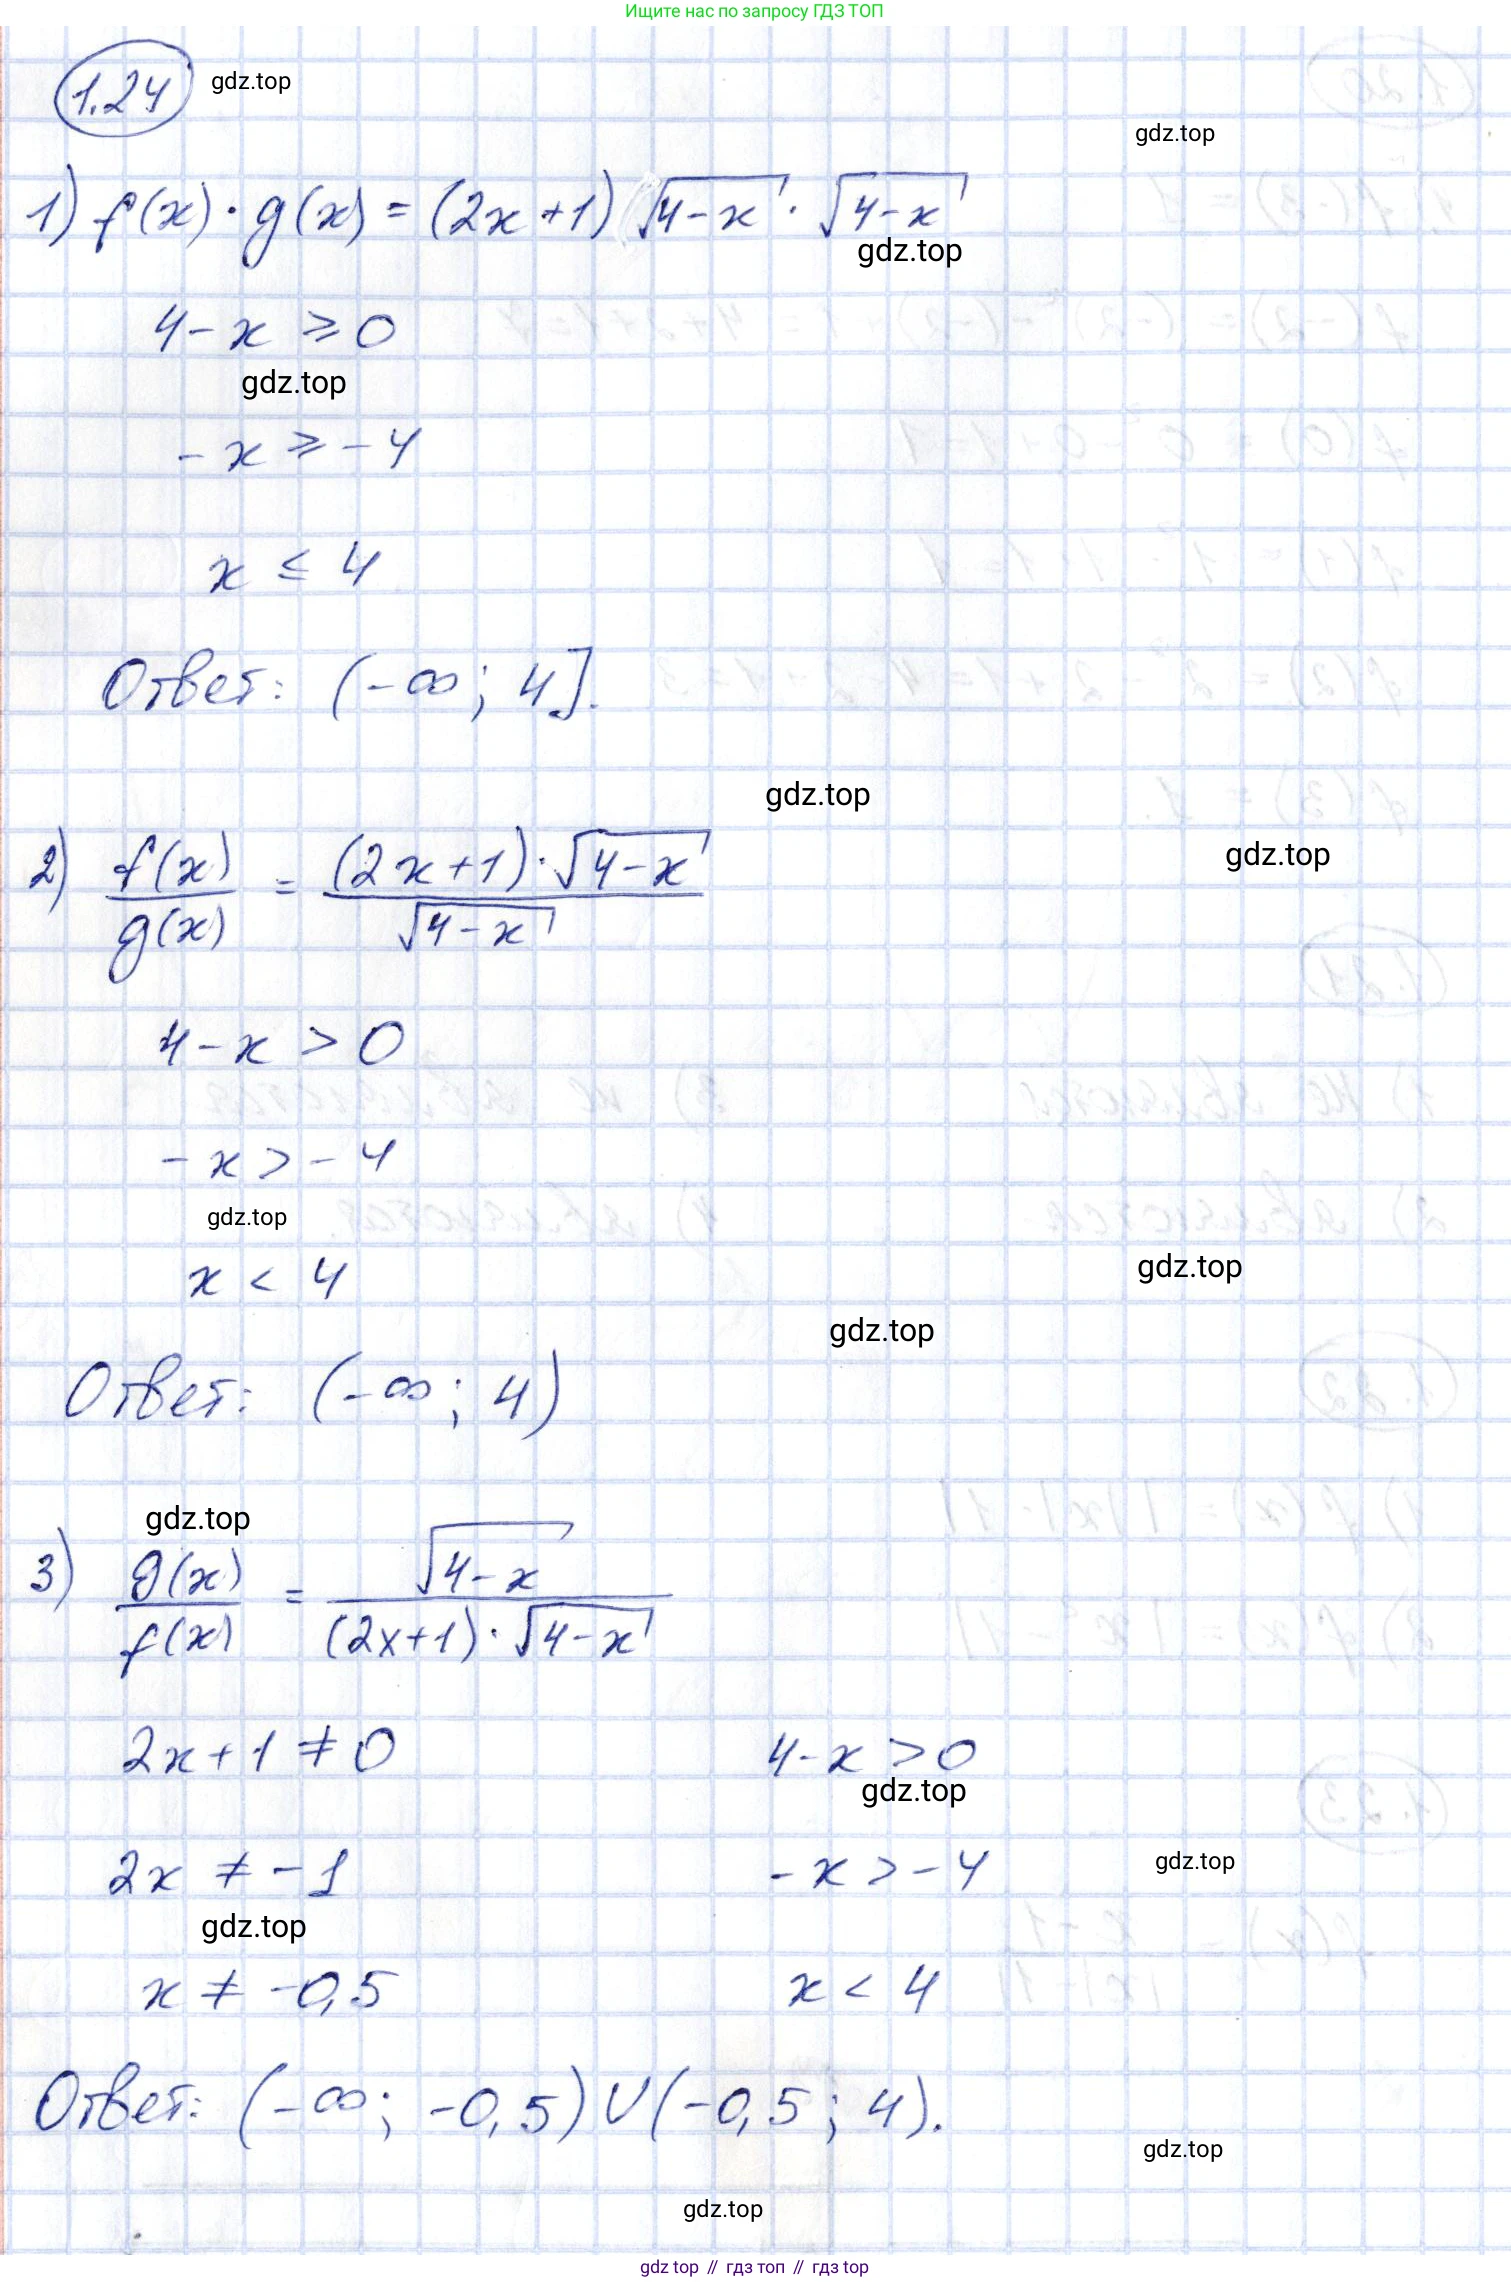 Ищите нас по запросу ГДЗ ТОП
1.24 gdz.top
gdz.top
1) f(x) · g(x) = (2x+1) √4-x · √4-x
gdz.top
4-x ⩾ 0
gdz.top
-x ⩾ -4
x ≤ 4
Ответ: (-∞; 4].
gdz.top
gdz.top
2) f(x)/g(x) = (2x+1)·√4-x / √4-x
4-x > 0
-x > -4
gdz.top
x < 4
gdz.top
gdz.top
Ответ: (-∞; 4)
gdz.top
3) g(x)/f(x) = √4-x / (2x+1)·√4-x
2x+1 ≠ 0 4-x > 0
gdz.top
2x ≠ -1 -x > -4
gdz.top
gdz.top
x ≠ -0,5 x < 4
Ответ: (-∞; -0,5) ∪ (-0,5; 4).
gdz.top
gdz.top
gdz top // гдз топ // гдз top